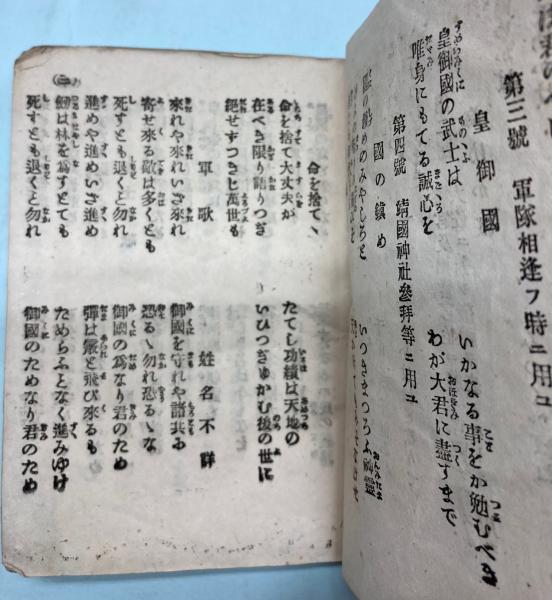 第三號 軍隊相逢フ時ニ用ユ
皇御國
皇御國の武士は いかなる事をか勉むべき
唯身にもてる誠心を わが大君に盡すまで
第四號 靖國神社參拜等ニ用ユ
國の鎭め
國の鎭めのみやしろと いつきまつろふ神靈
命を捨てヽ
命を捨て大丈夫が たてし功績は天地の
在べき限り語りつぎ いひつぎゆかむ後の世に
絕せずつきじ萬世も
軍歌 姓名不詳
來れや來れいざ來れ 御國を守れや諸共に
寄せ來る敵は多くとも 恐るヽ勿れ恐るヽな
死すとも退くと勿れ 御國の爲なり君のため
進めや進めいざ進め 彈は霰と飛び來るも
劔は林を爲すとても ためらふとなく進みゆけ
死すとも退くと勿れ 御國のためなり君のため
(二)